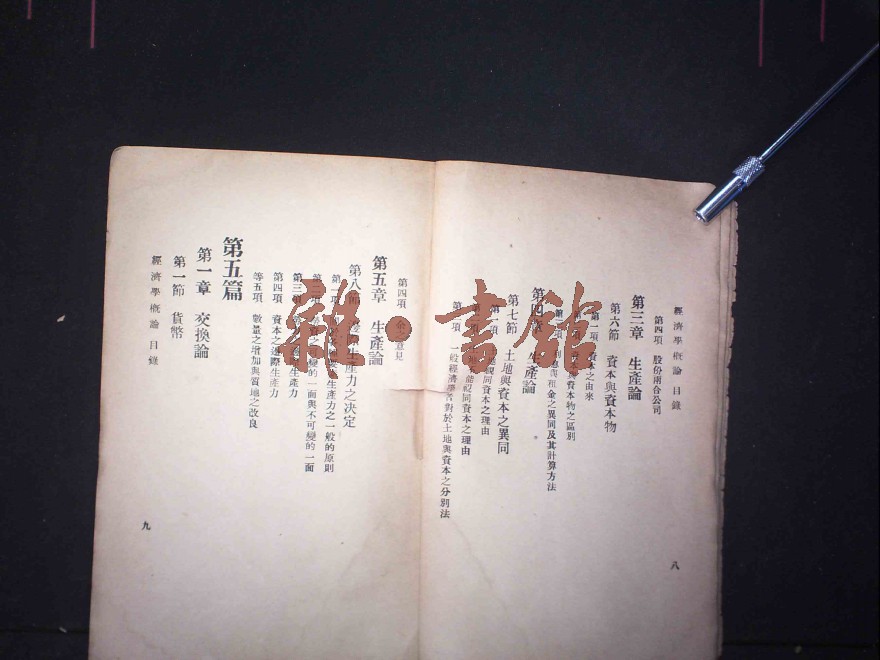 經濟學概論 目錄
第四項 股份兩合公司
第三章 生產論
第六節 資本與資本物
第一項 資本之由來
資本物之區別
租金之異同及其計算方法
第四章 生產論
第七節 土地與資本之異同
第一項 視同資本之理由
能視同資本之理由
項 一般經濟學者對於土地與資本之分別法
八
第四項 余之意見
第五章 生產論
第八節 生產力之決定
第一項 生產力之一般的原則
第二項 可變的一面與不可變的一面
第三項 生產力
第四項 資本之邊際生產力
等五項 數量之增加與質地之改良
第五篇
第一章 交換論
第一節 貨幣
經濟學概論 目錄
九
雜·書館